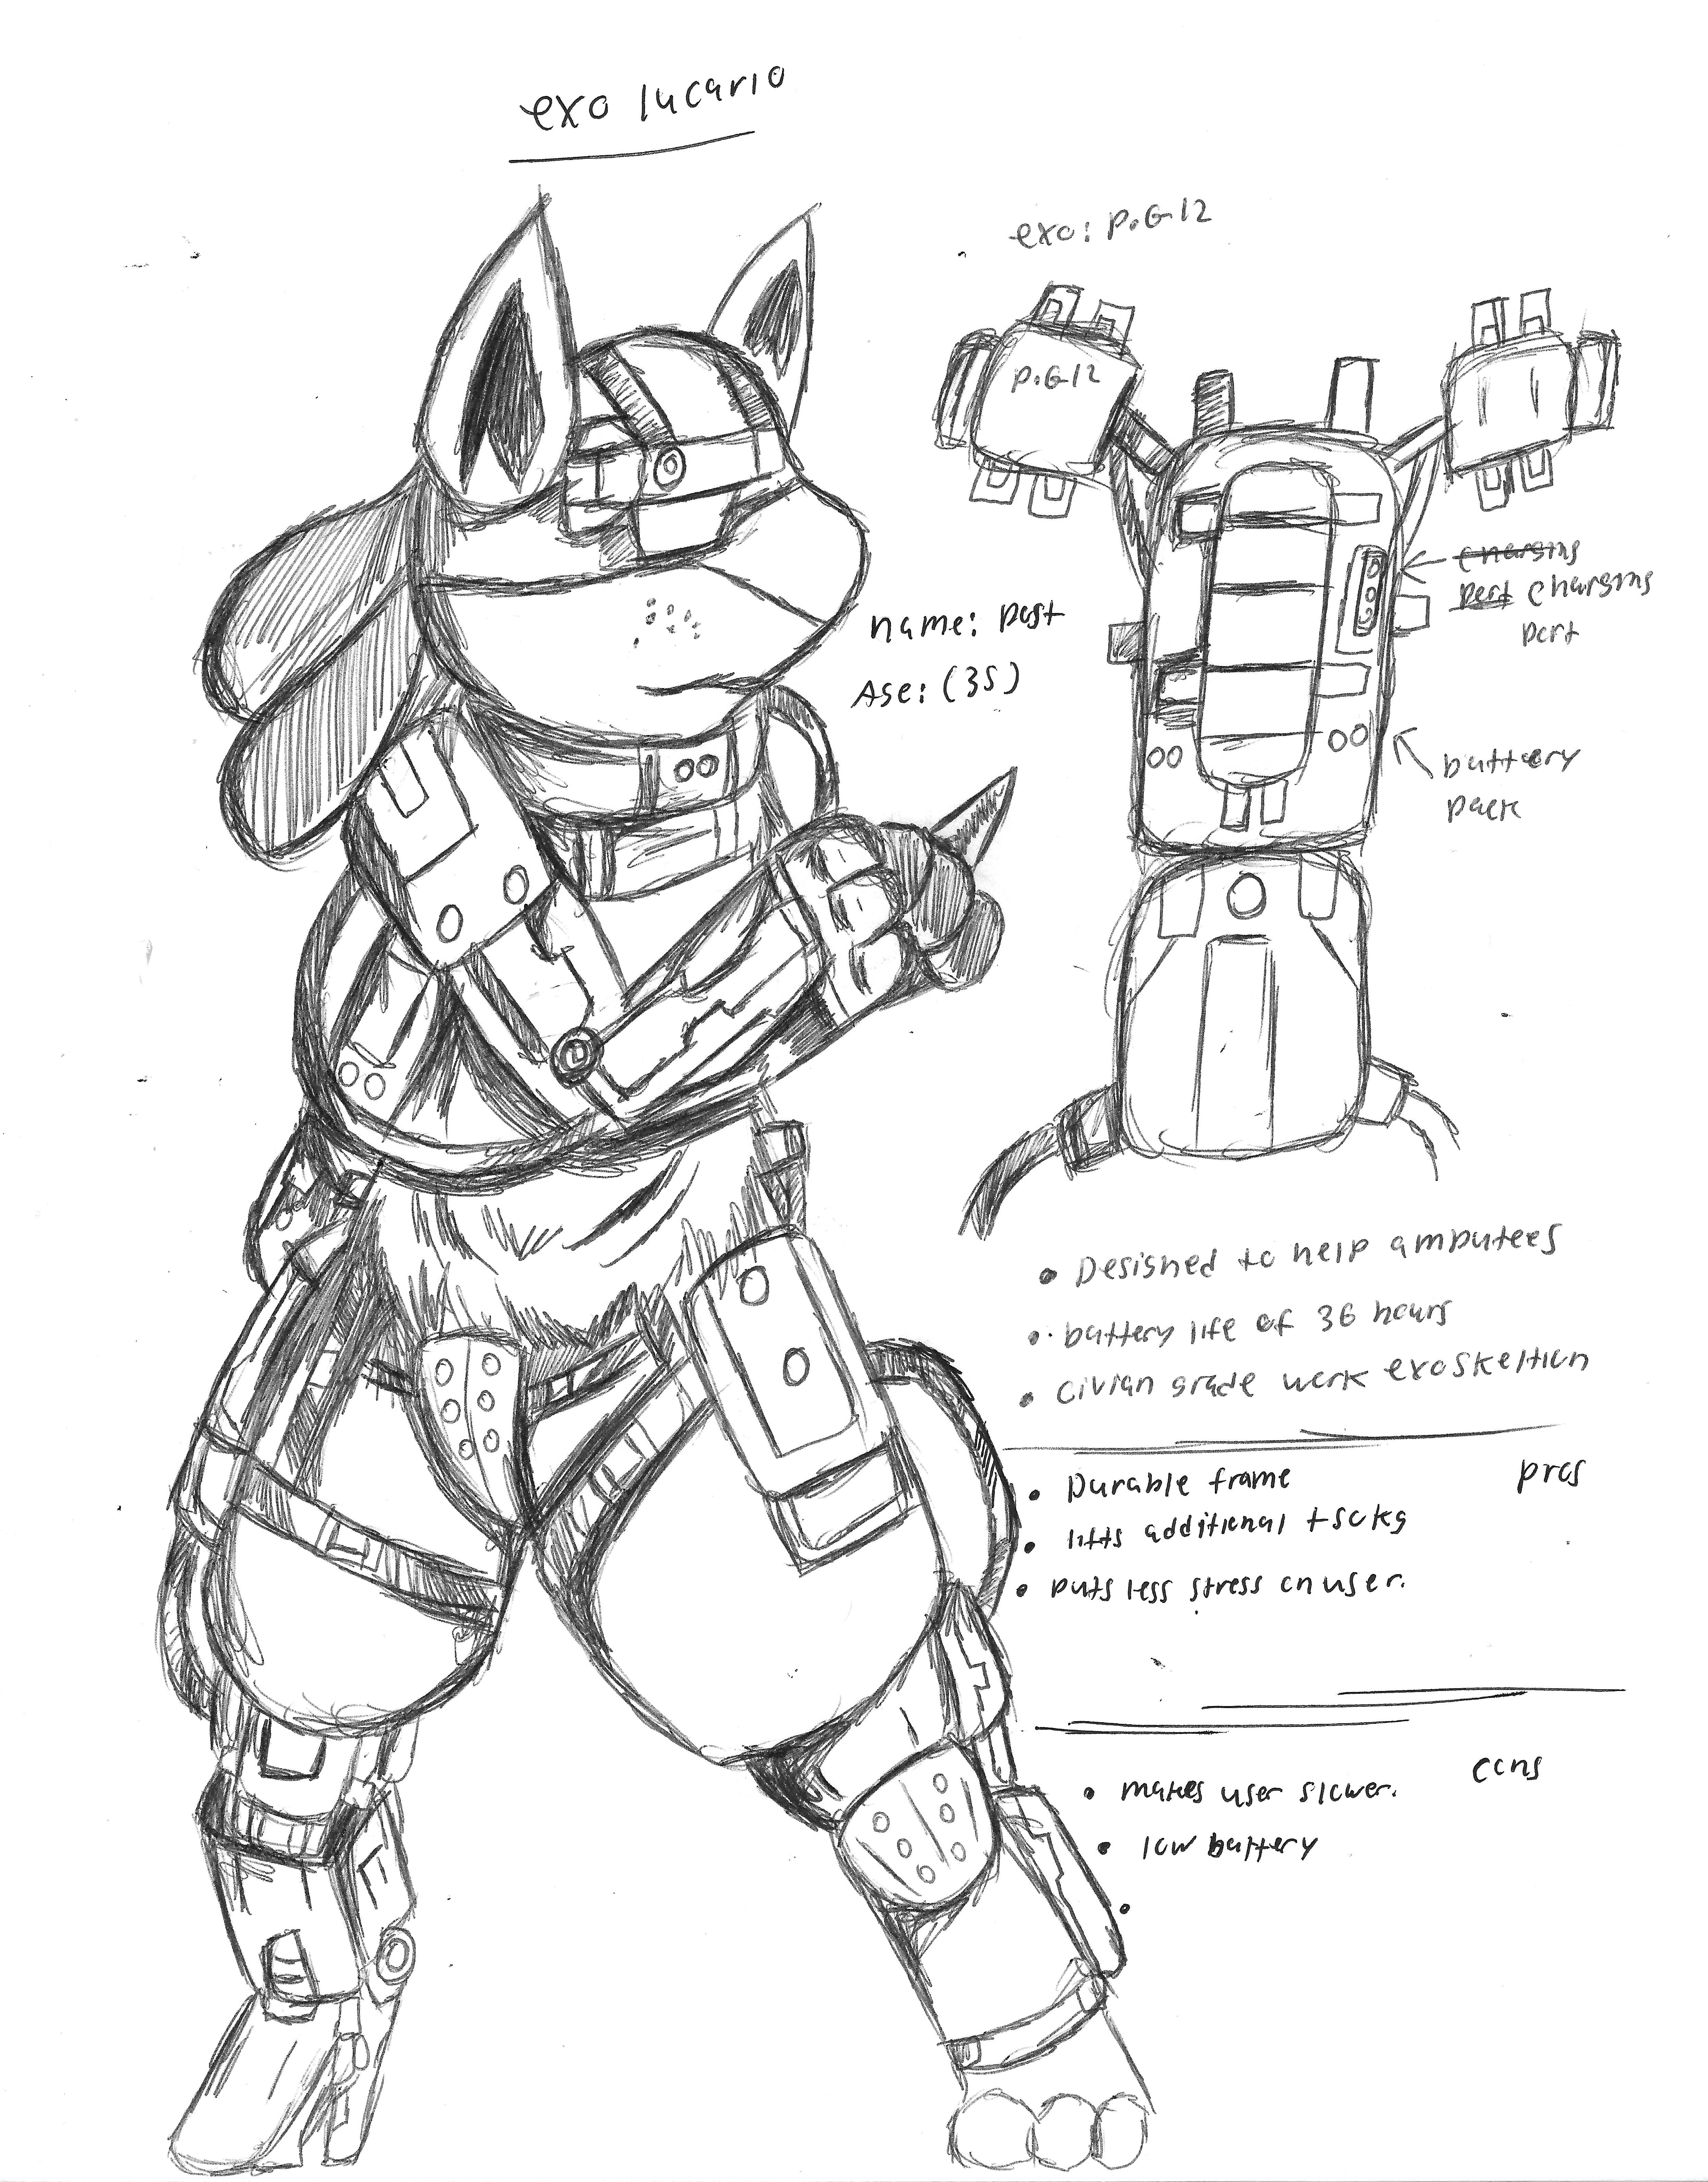 exo lucario
exo: P.G-12
P.G-12
charging
port charging
port
name: post
Age: (35)
battery
pack
• Designed to help amputees
• battery life of 36 hours
• civian grade work exoskeltion
• Durable frame
pros
• lifts additional +50kg
• puts less stress on user.
cons
• makes user slower.
• low battery
•